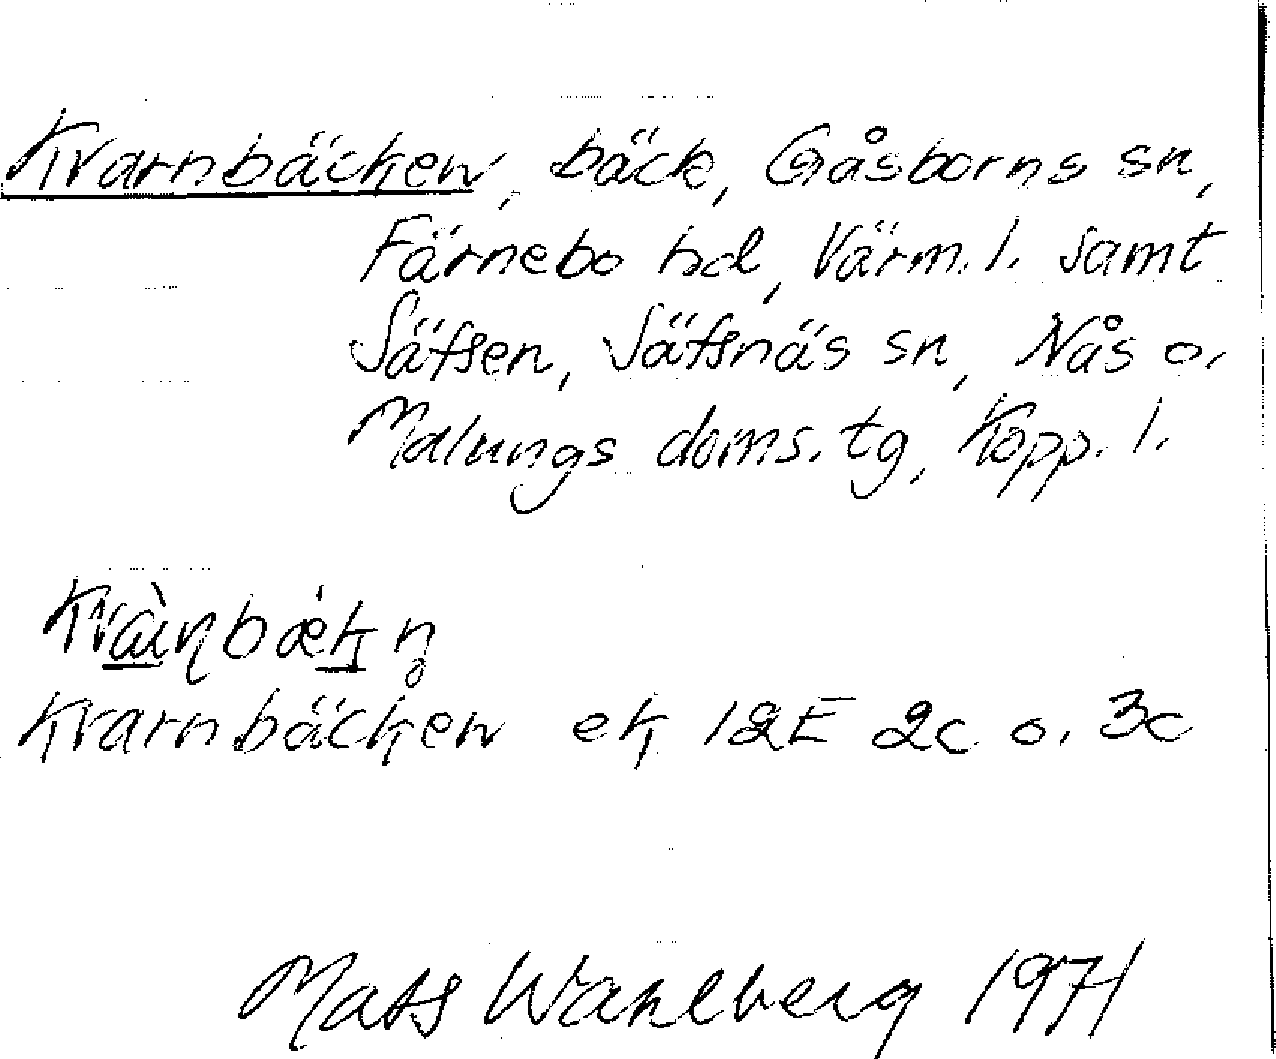 Kvarnbäcken, bäck, Gåsborns sn,
Färnebo hd, Värm. l. samt
Säfsen, Säfsnäs sn, Nås o.
Malungs doms. tg, Kopp. l.
Kvarnbäcken ek 12E 2c o. 3c
Mats Wahlberg 1971